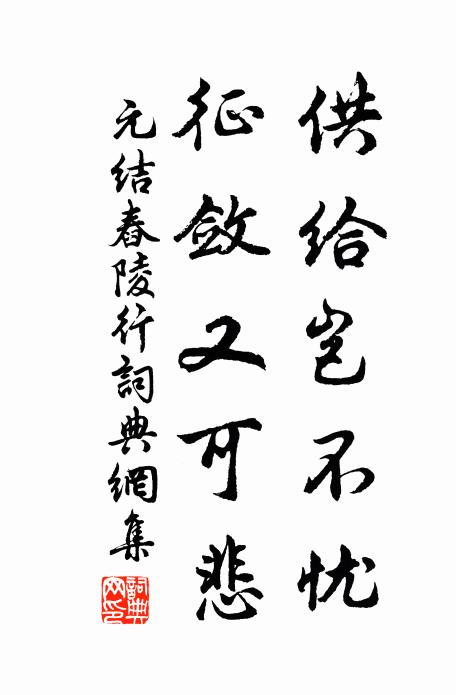 供给岂不忧
征敛又可悲
元结舂陵行詞典網集
詞典网印